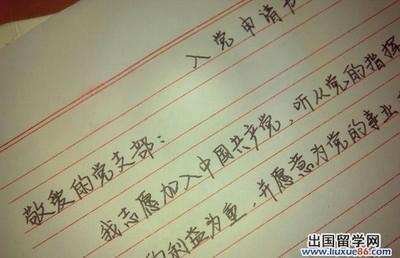 入党申请书
敬爱的党支部：
我志愿加入中國共产党，听从党的指挥
的利益为重，并愿意为党的事业
出国留学网
www.liuxue86.com